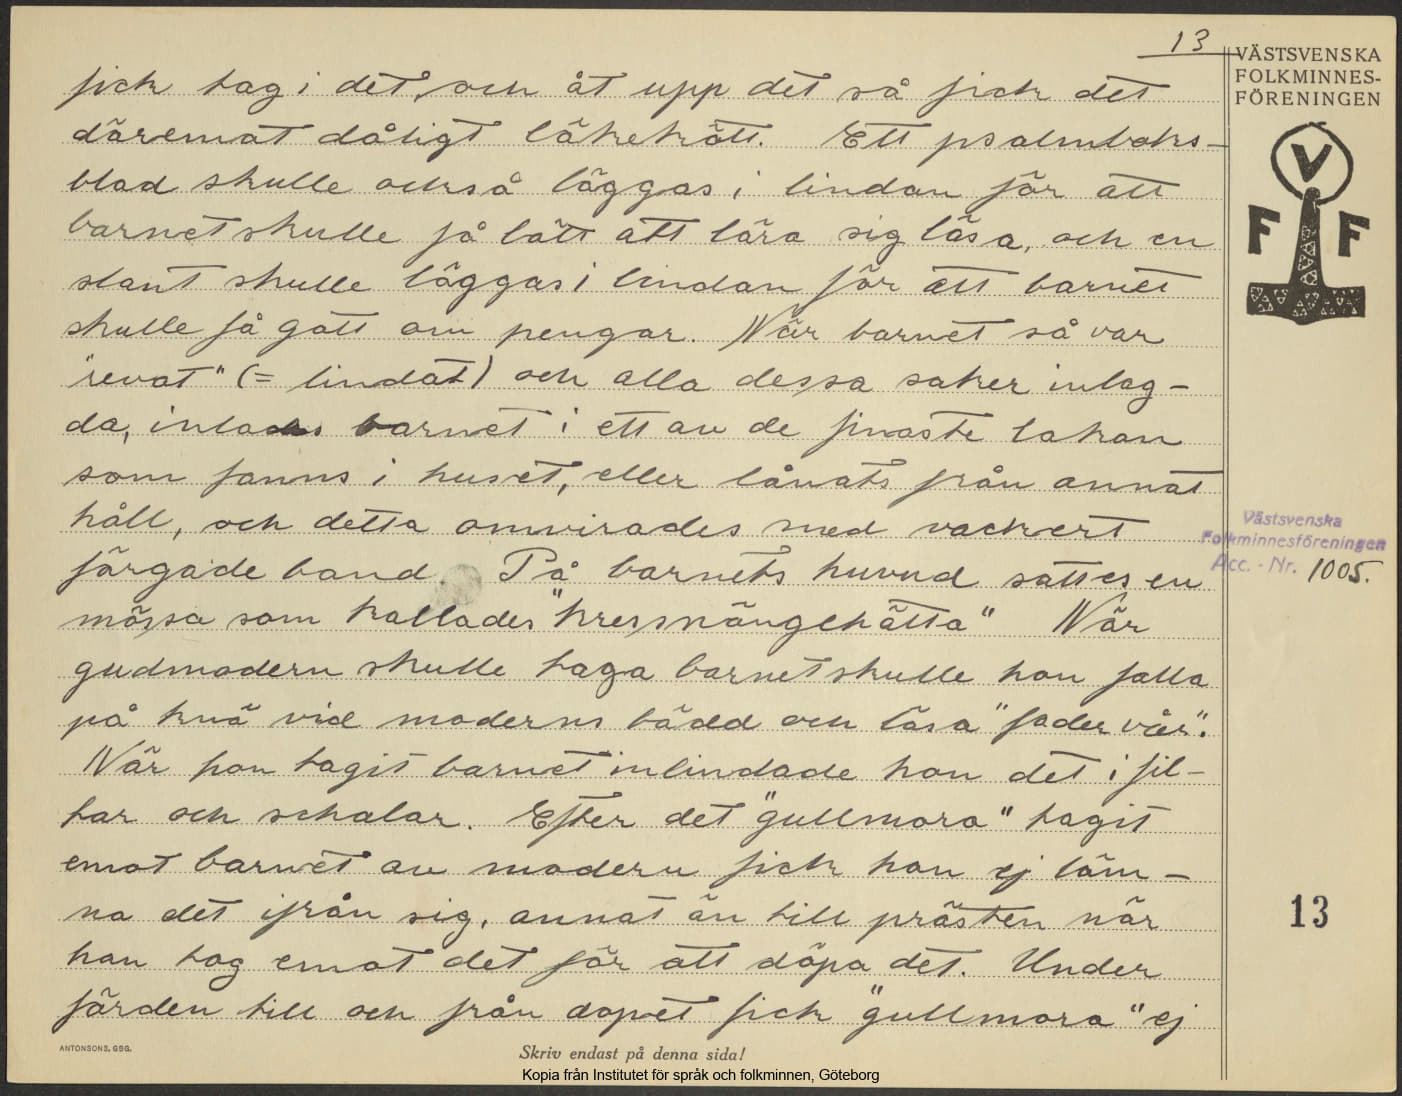 13
VÄSTSVENSKA
FOLKMINNES-
FÖRENINGEN
V
F F
fick tag i det, och åt upp det så fick det
däremot dåligt läkekött. Ett psalmboks-
blad skulle också läggas i lindan för att
barnet skulle få lätt att lära sig läsa, och en
slant skulle läggas i lindan för att barnet
skulle få gott om pengar. När barnet så var
"revat" (= lindat) och alla dessa saker inlag-
da, inlades barnet i ett av de finaste lakan
som fanns i huset, eller lånats från annat
håll, och detta omvirades med vackert
färgade band. På barnets huvud sattes en
mössa som kallades "kressnängehätta" När
gudmodern skulle taga barnet skulle hon falla
på knä vid moderns bädd och läsa "fader vår".
När hon tagit barnet inlindade hon det i fil-
tar och schalar. Efter det "gullmora" tagit
emot barnet av modern fick hon ej läm-
na det ifrån sig, annat än till prästen när
han tog emot det för att döpa det. Under
färden till och från dopet fick "gullmora" ej
Västsvenska
Folkminnesföreningen
Acc. - Nr. 1005.
13
ANTONSONS, GBG.
Skriv endast på denna sida!
Kopia från Institutet för språk och folkminnen, Göteborg